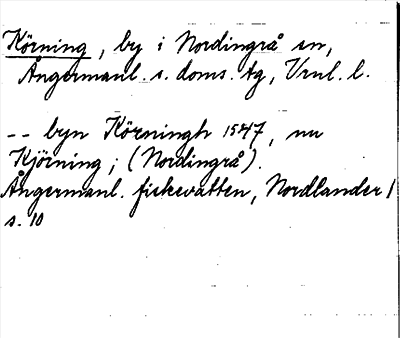 Körning, by i Nordingrå sn,
Ångermanl. s. doms. tg, Vrnl. l.
-- byn Körningh 1547, nu
Kjörning; (Nordingrå).
Ångermanl. fiskevatten, Nordlander 1
s. 10